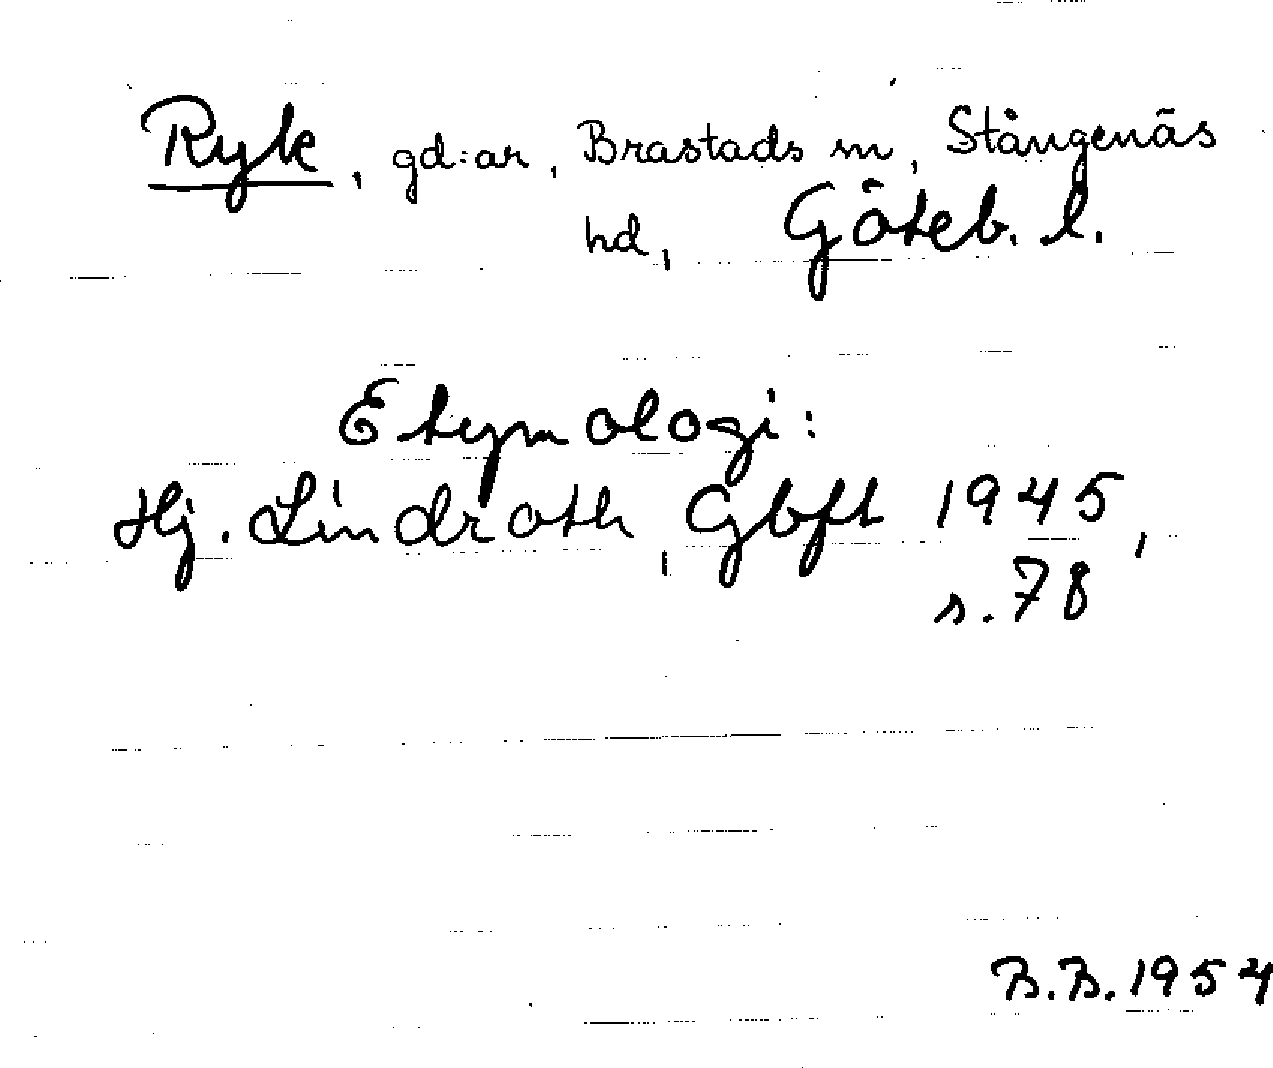 Ryk, gd:ar, Brastads sn, Stångenäs
hd, Göteb. l.
Etymologi:
Hj. Lindroth, Gbft 1945,
s. 78
B.B. 1954